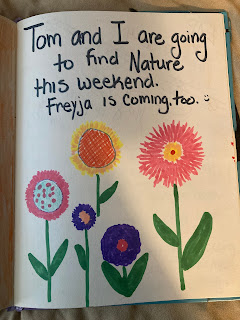 Tom and I are going
to find Nature
this weekend.
Freyja is coming, too. :)